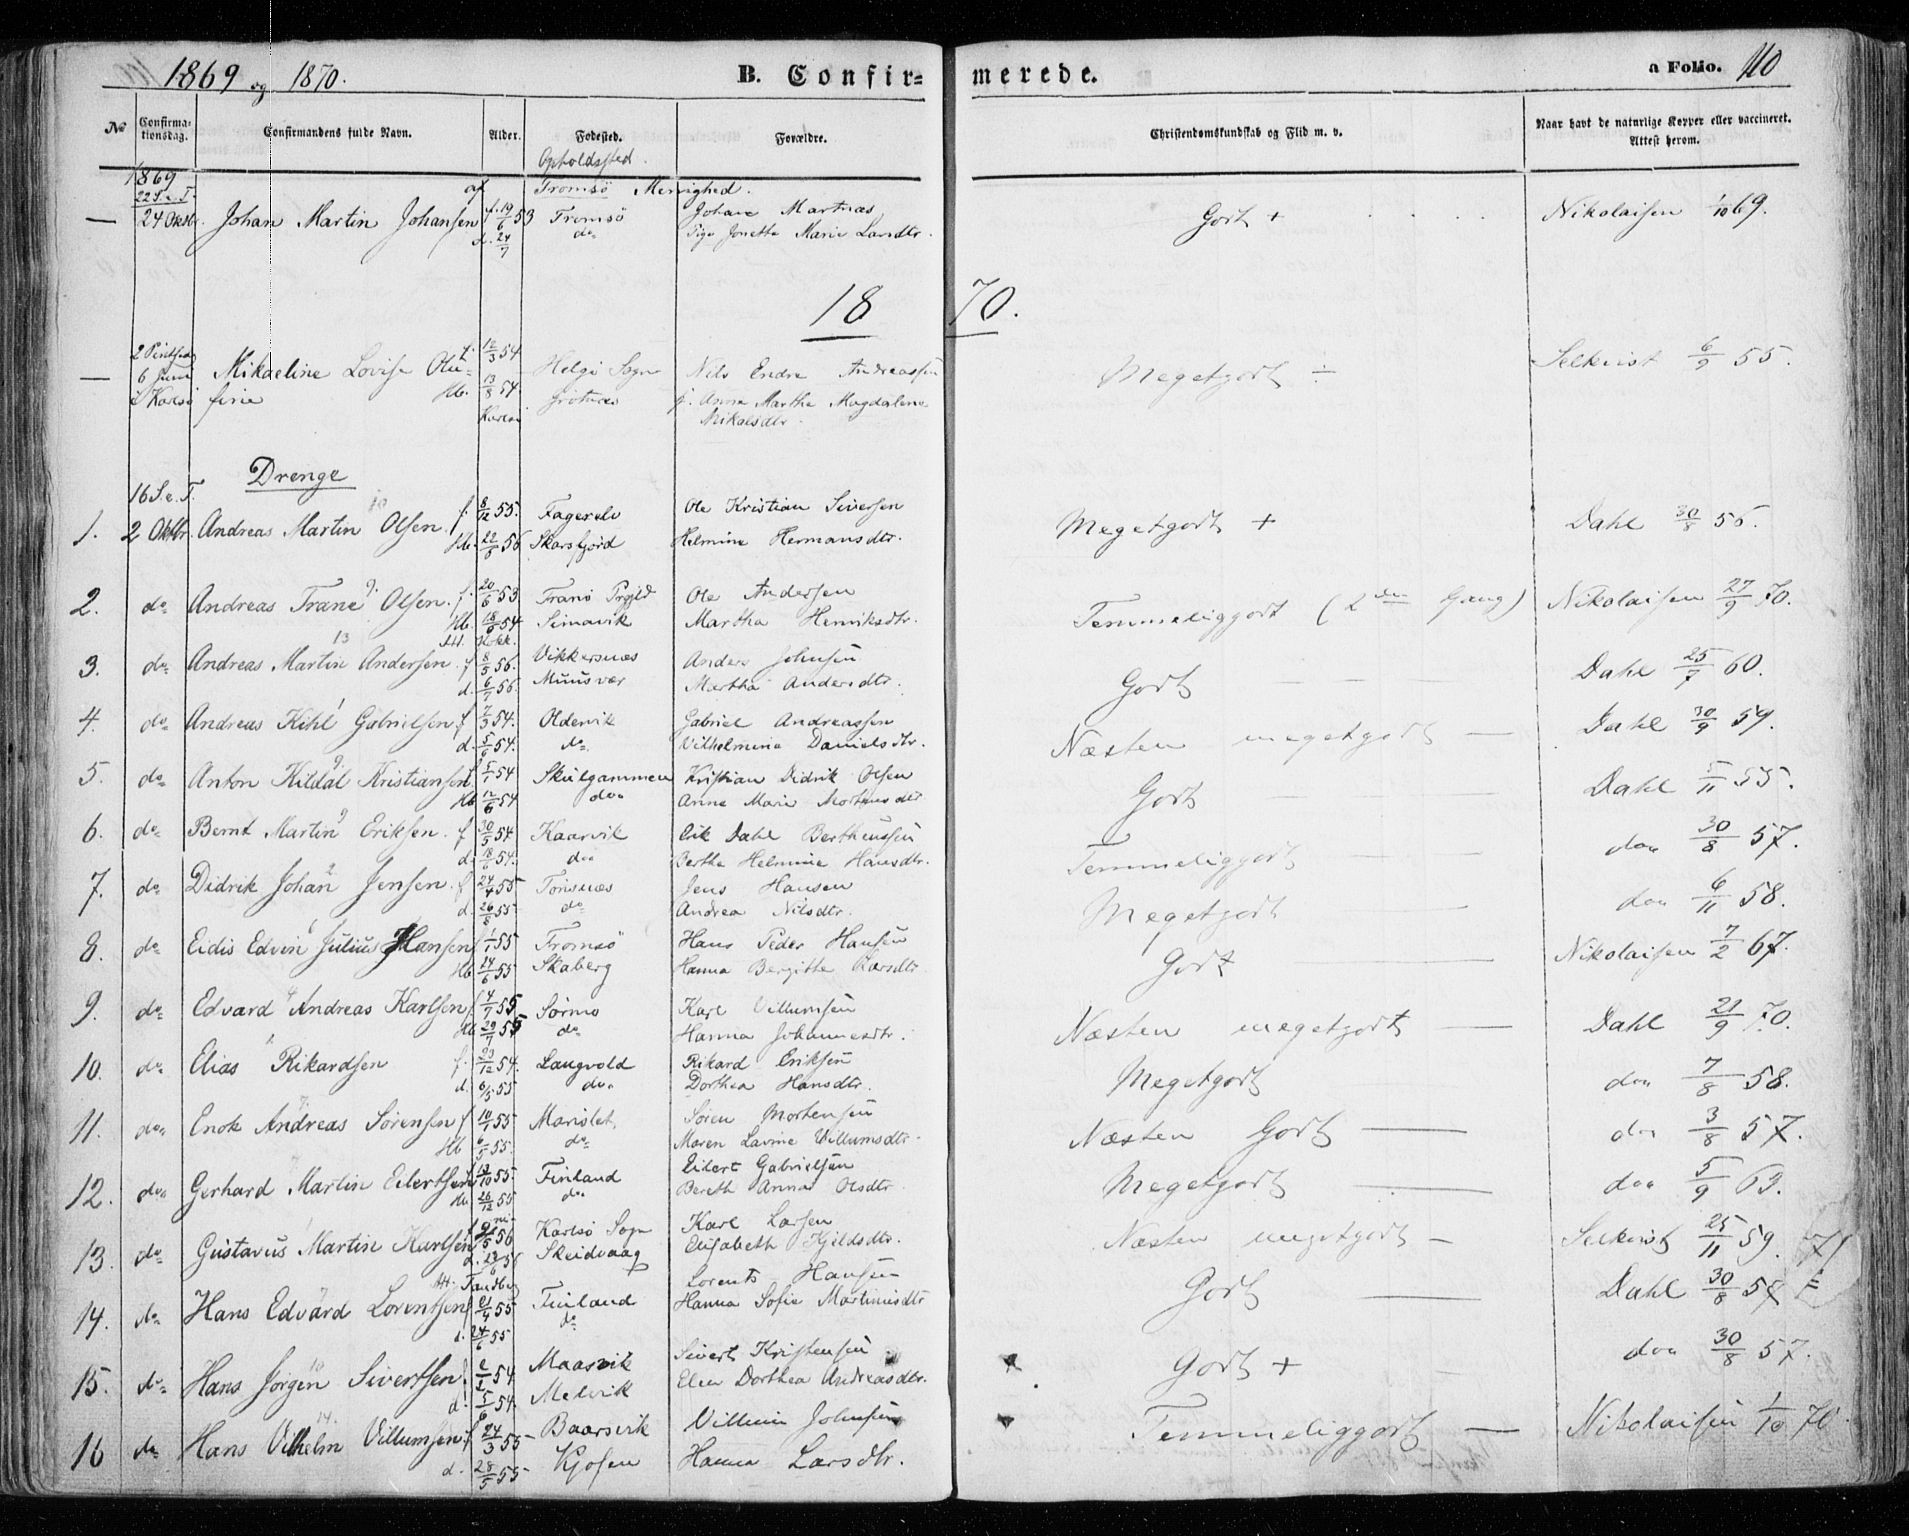 1869 og 1870. B. Confirmerede. a Folio. 110
No Confirmationsdag. Confirmandens fulde Navn. Alder. Fødested. Forældre. Christendomskundskab og Flid m. v. Naar havt de naturlige Kopper eller vaccineret. Attest herom.
Opholdssted.
1869
22 S. e. T. af Tromsö Menighed.
— 24 Oktbr. Johan Martin Johansen f. 19/6 53 Tromsö Johan Martnæs Godt + Nikolaisen 1/10 69.
d. 24/7 do Pige Jonetta Marie Larsdtr.
1870.
2 Pintsed. f. 12/3 54
— 6 Juni Mikaeline Lovise Olu= Helgö Sogn Nils Endre Andreassen Megetgodt ÷ Selkvist 6/9 55.
i Karlsö fine Hb. 13/8 54. Grötnæs p. Anne Martha Magdalena
Karlsö Nikalsdtr.
Drenge
16 S. e. T.
1. 2 Oktbr. Andreas Martin Olsen f. 8/12 55. Fagerelv Ole Kristian Siversen Megetgodt + Dahl 30/8 56.
Hb. 22/5 56 Skarsfjord Helmine Hermansdtr.
2. do Andreas Trane Olsen f. 20/6 53 Tranö Prgjld Ole Andersen Temmeliggodt (2den Gang) Nikolaisen 27/9 70.
Hb. 18/6 54 Simavik Martha Henriksdtr.
3. do Andreas Martin Andersen f 8/5 56. Vikkersnæs Anders Johnsen Godt — Dahl 25/7 60.
d. 6/7 56. Muusvær Martha Andersdtr.
4. do Andreas Kihl Gabrielsen f 7/3 54. Oldervik Gabriel Andreassen Næsten megetgodt — Dahl 30/9 59.
d. 5/6 54. do Vilhelmine Danielsdtr.
5. do Anton Kildal Kristiansen f 5/1 54 Skulgammen Kristian Didrik Olsen Godt — Dahl 5/11 55.
Hb 12/6 54 do Anne Marie Mortensdtr
6. do Bernt Martin Eriksen. f 30/5 54 Kaarvik Erik Dahl Bertheussen Temmeliggodt — do 30/8 57.
d. 18/ 54. do Berthe Helmine Hansdtr.
7. do Didrik Johan Jensen f 24/4 55 Tonsnæs Jens Hansen Megetgodt — do 6/11 58.
d. 26/8 55 do Andrea Nilsdtr.
8. do Eidis Edvin Julius Hansen f 1/1 55 Tromsö Hans Peder Hansen Godt — Nikolaisen 7/2 67.
Hb 24/6 55 Skaberg Hanna Bergitte Larsdtr.
9. do Edvard Andreas Karlsen f 4/7 55 Sörmo Karl Villumsen Næsten megetgodt — Dahl 21/9 70.
Hb 29/7 55 do Hanna Johannesdtr.
10. do Elias Rikardsen f. 23/12 54. Langvold Rikard Eriksen Megetgodt do 7/8 58.
d. 6/5 55 do Dorthea Hansdtr.
11. do Enok Andreas Sörensen f 10/1 55 Marislet. Sören Mortensen Næsten Godt — do 3/8 57.
Hb 6/5 55. do Maren Lavine Villumsdtr.
12. do Gerhard Martin Eilertsen 13/10 55. Finland Eilert Gabrielsen Megetgodt — do 5/9 63.
Hb 26/12 55 do Bereth Anna Olsdtr
13. do Gustavus Martin Karlsen f 9/5 56 Karlsö Sogn Karl Larsen Næsten megetgodt — Selkvist 25/11 59.
Skeidvaag Elisabeth Kjeldsdtr.
14. do Hans Edvard Lorentsen f 21/4 55 Finland Lorents Hansen Godt — Dahl 30/8 57
d. 24/6 55 do Hanna Sofie Martinusdtr
15. do Hans Jörgen Sivertsen f 2/2 54 Maasvik Sivert Kristensen Godt + do 30/8 57.
d. 5/6 54. Melvik Elen Dorthea Andreasdtr.
16 do Hans Vilhelm Villumsen f 24/3 55 Baarsvik Villum Johnsen Temmeliggodt — Nikolaisen 1/10 70
d. 28/5 55 Kjosen Hanna Larsdtr.